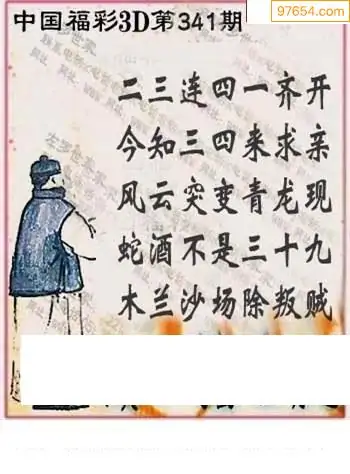 中国福彩3D第341期
97654.com
二三连四一齐开
今知三四来求亲
风云突变青龙现
蛇酒不是三十九
木兰沙场除叛贼